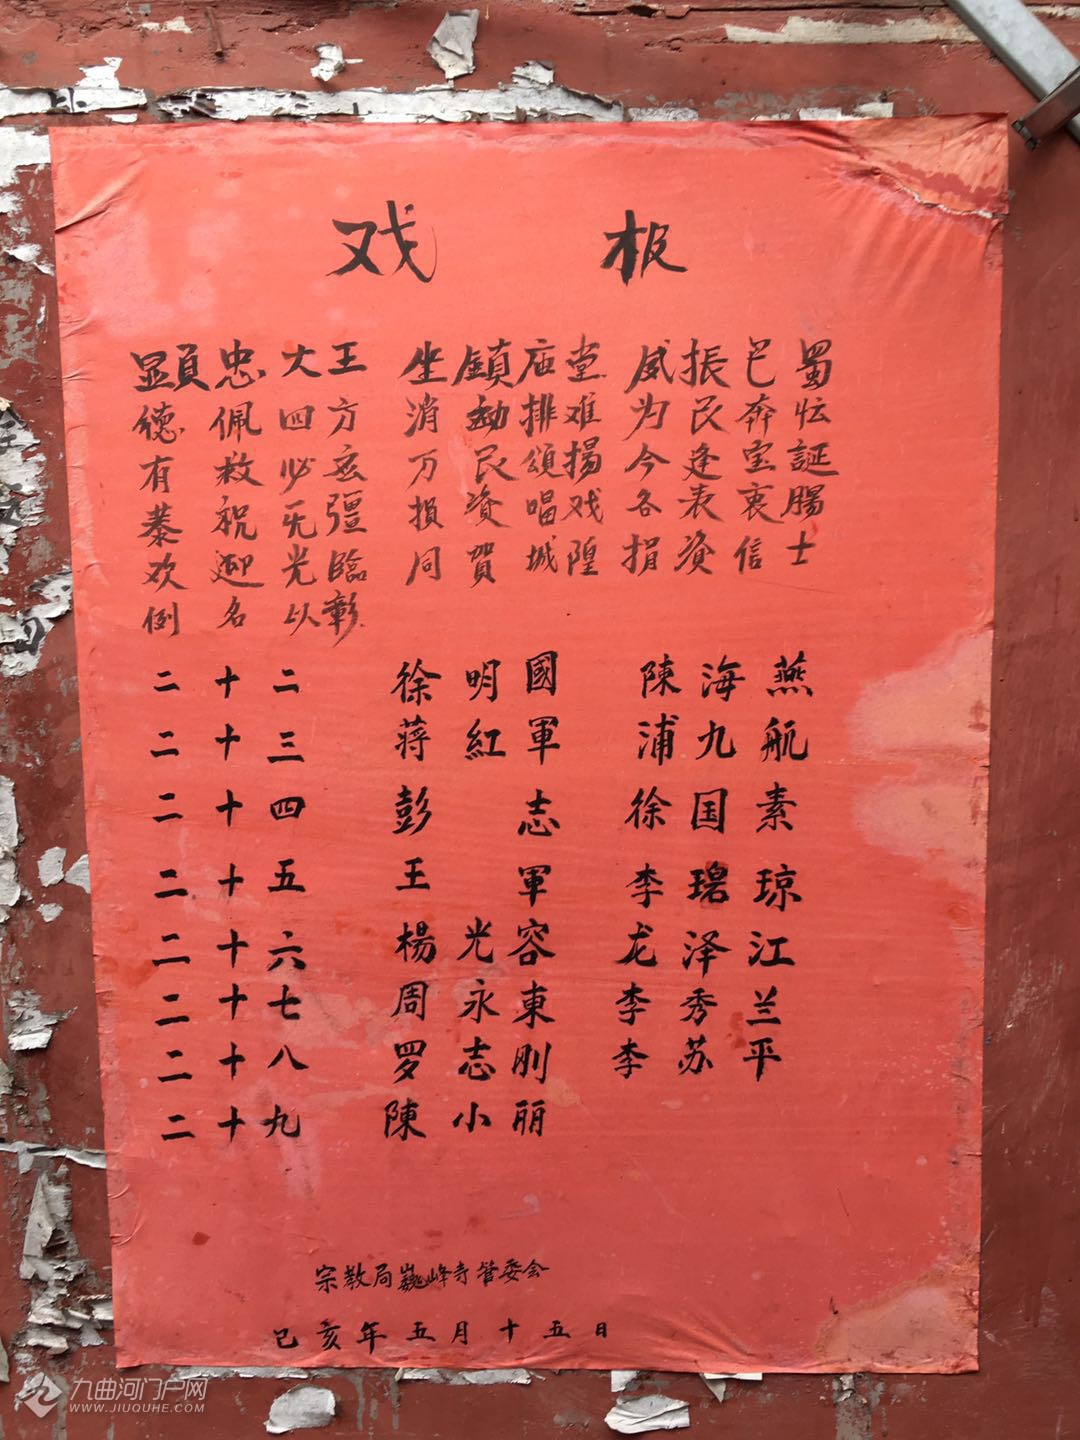 戏报
顯忠大王 坐鎮庙堂 威振巴蜀
德佩四方 消劫排难 为民奔忙
有救必应 万民頌揚 今逢宝誕
恭祝无疆 損資唱戏 各表衷腸
欢迎光臨 同賀城隍 捐資信士
例名以彰
二十二 徐明國 陳海燕
二十三 蒋紅軍 浦九航
二十四 彭志 徐国素
二十五 王軍 李碧琼
二十六 楊光容 龙泽江
二十七 周永東 李秀兰
二十八 罗志刚 李苏平
二十九 陳小丽
宗教局巍峰寺管委会
己亥年五月十五日
九曲河门户网
WWW.JIUQUHE.COM